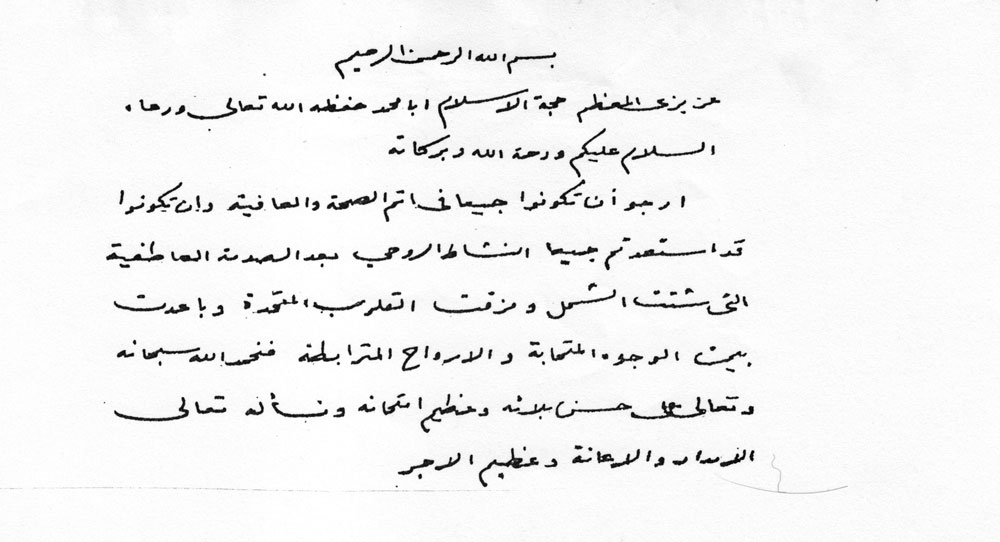 بسم الله الرحمن الرحيم
عزيزي المعظم حجة الاسلام ابا محمد حفظه الله تعالى ورعاه
السلام عليكم ورحمة الله وبركاته
ارجو أن تكونوا جميعا في اتم الصحة والعافية وان تكونوا
قد استعدتم جميعا النشاط الروحي بعد الصدمة العاطفية
التي شتت الشمل ومزقت القلوب المتحدة وباعدت
بين الوجوه المتحابة والارواح المترابطة فنحمد الله سبحانه
وتعالى على حسن بلائه وعظيم امتحانه ونسأله تعالى
الامداد والاعانة وعظيم الاجر